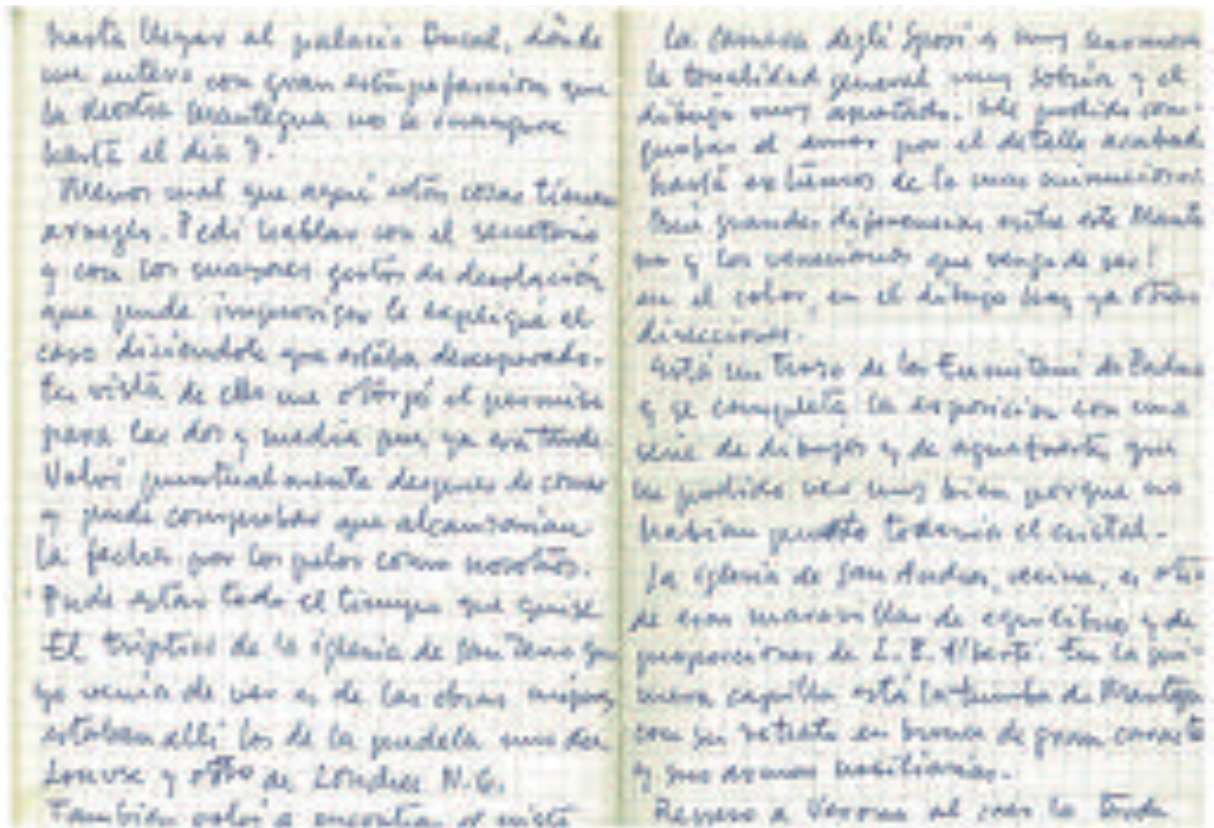 hasta llegar al palacio Ducal, dónde
me entero con gran estupefacción que
la mostra Mantegna no se inaugura
hasta el día 7.
Menos mal que aquí estas cosas tienen
arreglo. Pedí hablar con el secretario
y con los mayores gestos de desolación
que pude improvisar le expliqué el
caso diciéndole que estaba desesperado.
En vista de ello me otorgó el permiso
para las dos y media pues ya era tarde.
Volví puntualmente despues de comer
y pude comprobar que alcanzarían
la fecha por los pelos como nosotros.
Pude estar todo el tiempo que quise
El tríptico de la iglesia de San Zeno que
yo venía de ver es de las obras mejores
estaban allí los de la predela uno del
Louvre y otro de Londres N.G.
Tambien volví a encontrar el
La Camera degli Sposi es muy hermosa
la tonalidad general muy sobria y el
dibujo muy apretado. He podido com-
probar el amor por el detalle acabado
hasta extremos de lo mas minucioso.
Que grandes diferencias entre este Mante
no y los venecianos que vengo de ver!
en el color, en el dibujo hay ya otras
direcciones.
está un trozo de los Eremitani de Padua
y se completa la exposición con una
serie de dibujos y de aguafuertes que
he podido ver muy bien porque no
habían puesto todavía el cristal.
La iglesia de San Andrea, vecina, es otra
de esas maravillas de equilibrio y de
proporciones de L. B. Alberti. En la pri-
mera capilla está la tumba de Mantegna
con su retrato en bronce de gran caracter
y sus armas nobiliarias.
Regreso a Verona al caer la tarde